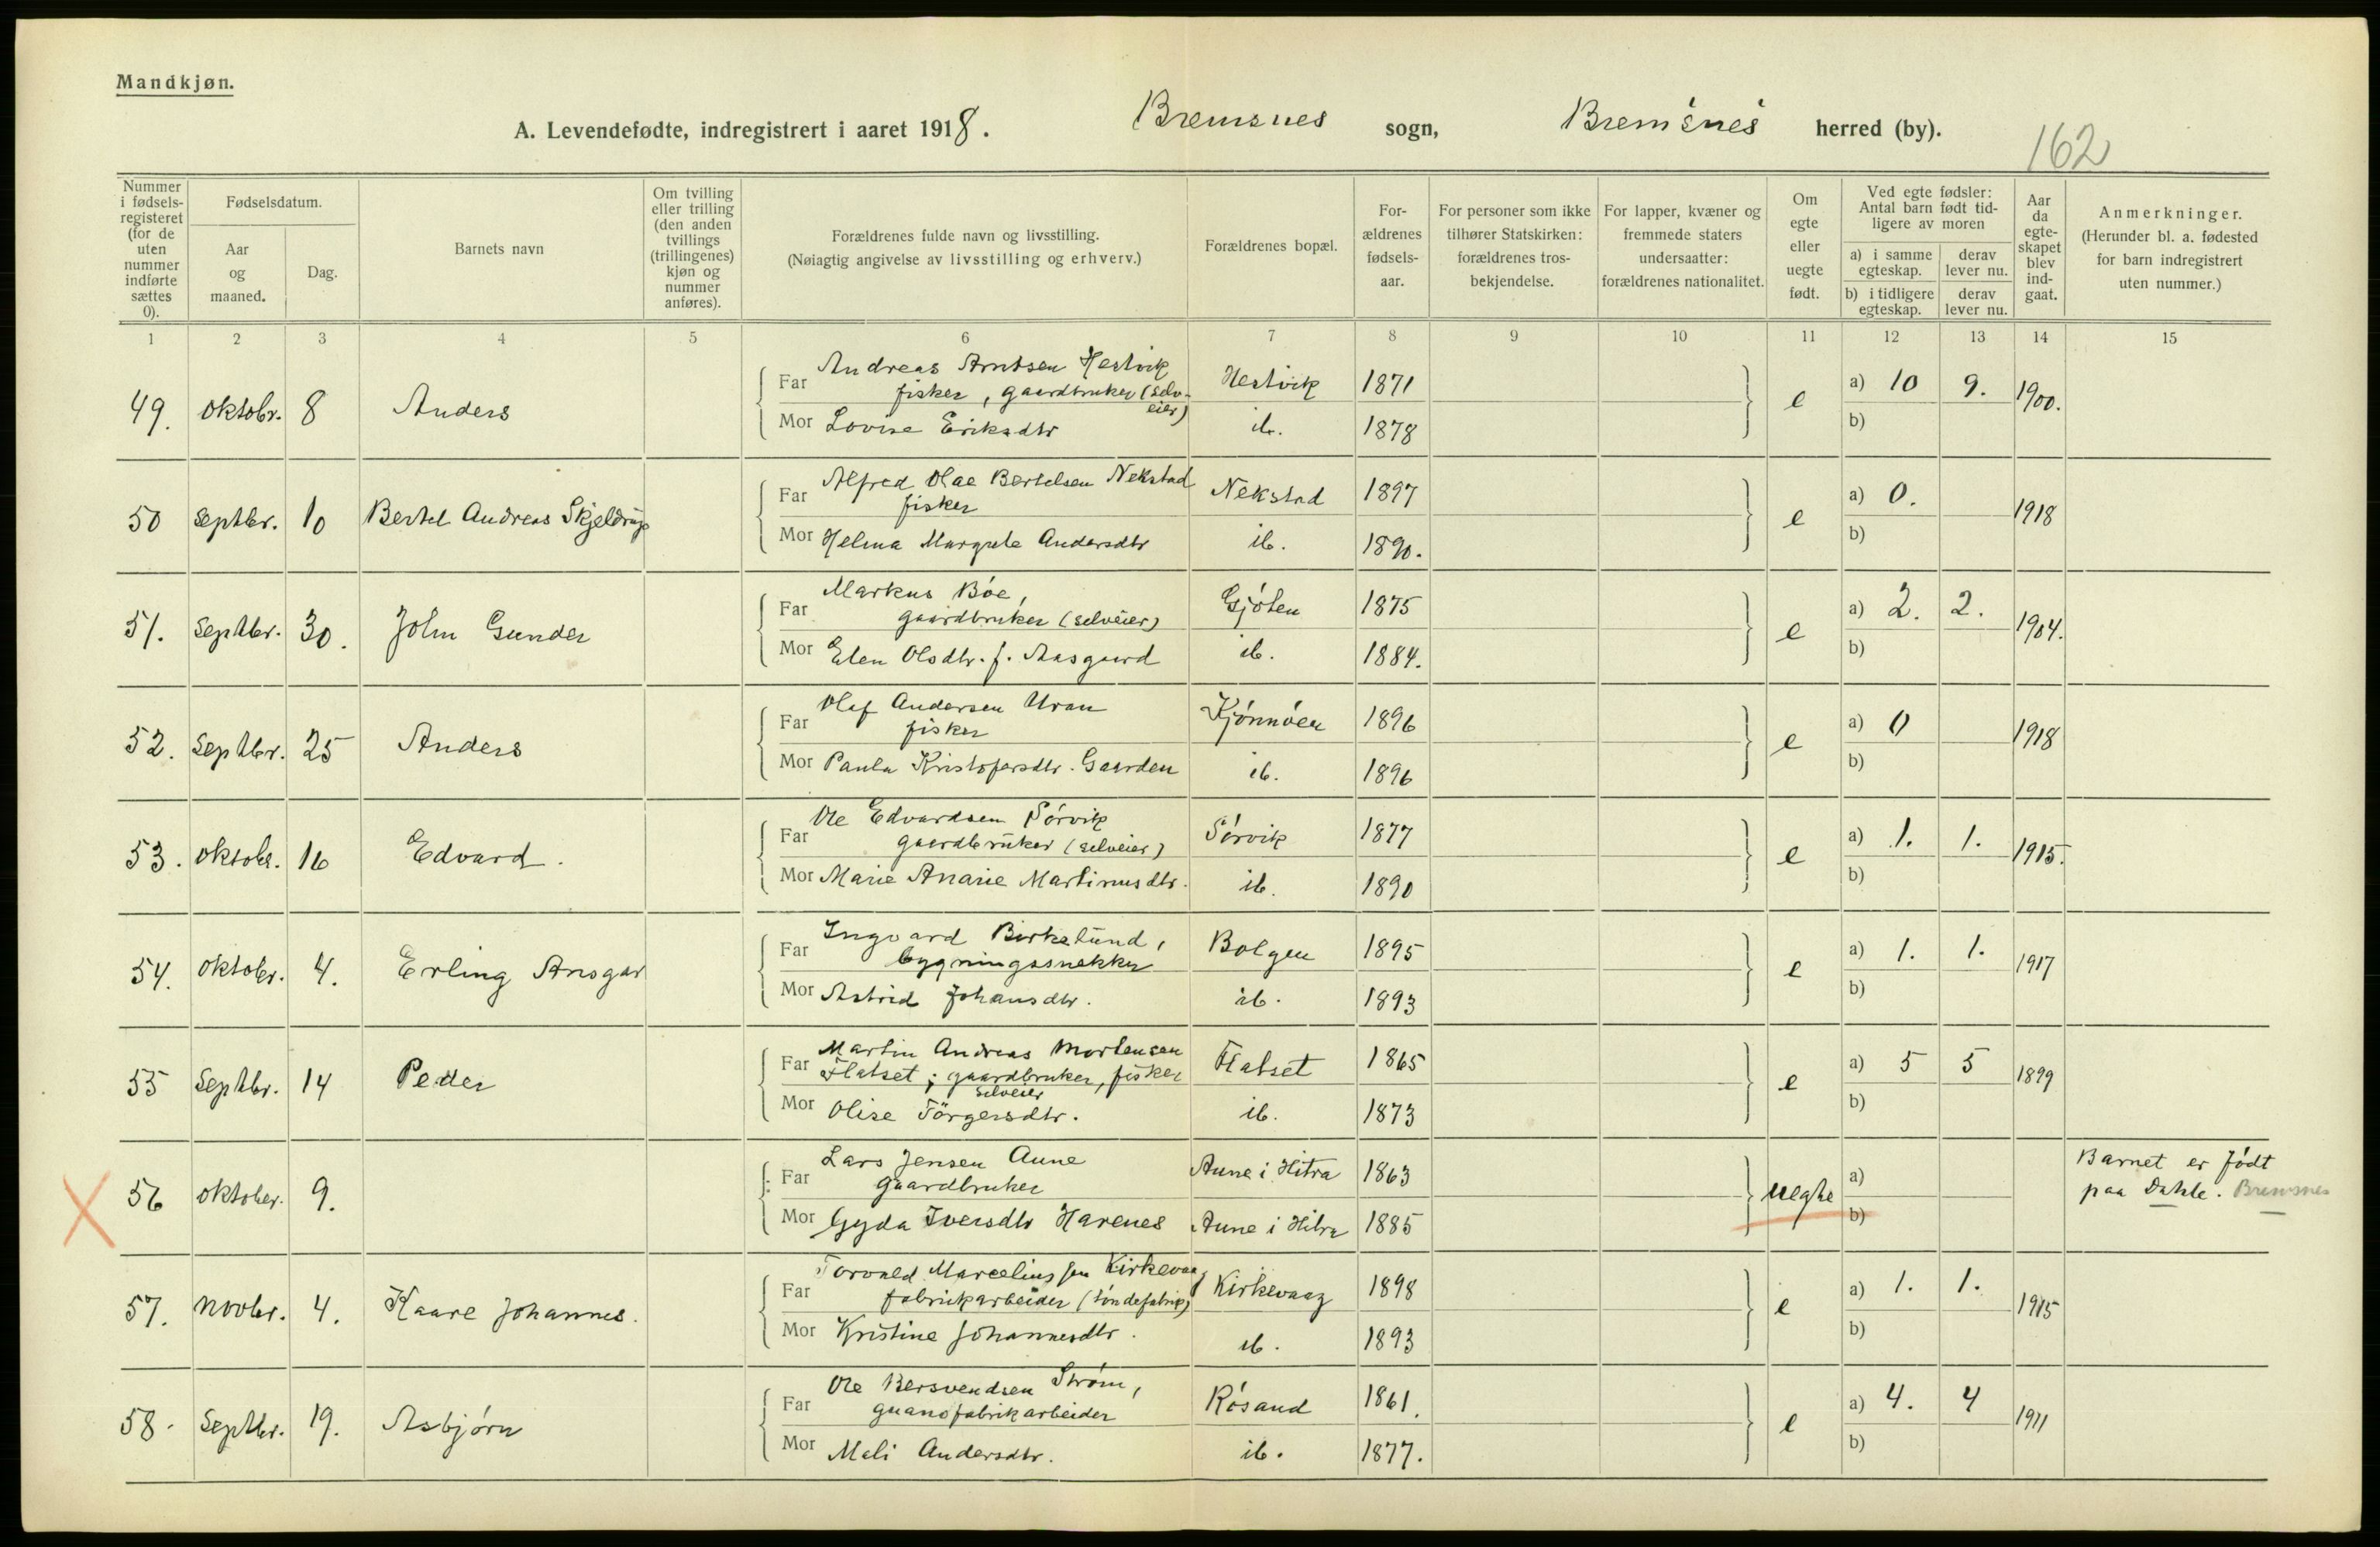 Mandkjøn.
A. Levendefødte, indregistrert i aaret 1918. Bremsnes sogn, Bremsnes herred (by).
162
Nummer i fødselsregisteret (for de uten nummer indførte sættes 0).
Fødselsdatum.
Aar og maaned.
Dag.
Barnets navn
Om tvilling eller trilling (den anden tvillings (trillingenes) kjøn og nummer anføres).
Forældrenes fulde navn og livsstilling.
(Nøiagtig angivelse av livsstilling og erhverv.)
Forældrenes bopæl.
Forældrenes fødselsaar.
For personer som ikke tilhører Statskirken: forældrenes trosbekjendelse.
For lapper, kvæner og fremmede staters undersaatter: forældrenes nationalitet.
Om egte eller uegte født.
Ved egte fødsler: Antal barn født tidligere av moren
a) i samme egteskap. derav lever nu.
b) i tidligere egteskap. derav lever nu.
Aar da egteskapet blev indgaat.
Anmerkninger.
(Herunder bl. a. fødested for barn indregistrert uten nummer.)
1 2 3 4 5 6 7 8 9 10 11 12 13 14 15
49. oktobr. 8 Anders
Far Andreas Arntsen Hestvik Hestvik 1871
fisker, gaardbruker (selveier)
Mor Lovise Eriksdtr ib. 1878
e a) 10 9. 1900.
b)
50 septbr. 10 Bertel Andreas Skjeldrup
Far Alfred Olae Bertelsen Nekstad Nekstad 1897
fisker
Mor Helma Margrete Andersdtr ib. 1890.
e a) 0. 1918
b)
51. Septbr. 30. John Gunder
Far Markus Bóe, Gjóten 1875
gaardbruker (selveier)
Mor Elen Olsdtr. f. Aasgaard ib. 1884.
e a) 2. 2. 1904.
b)
52. Septbr. 25 Anders
Far Olaf Andersen Uran Kjónnóen 1896
fisker
Mor Paula Kristofersdtr. Gaarden ib. 1896
e a) 0 1918
b)
53. oktobr. 16 Edvard.
Far Ole Edvardsen Sórvik Sórvik 1877
gaardbruker (selveier)
Mor Marie Anarie Martinusdtr. ib. 1890
e a) 1. 1. 1915.
b)
54. oktobr. 4. Erling Ansgar
Far Ingvard Birkelund, Bolgen 1895
bygningssnekker
Mor Astrid Johansdtr. ib. 1893
e a) 1. 1. 1917
b)
55 Septbr. 14 Peder
Far Martin Andreas Mortensen Flatset 1865
Flatset; gaardbruker, fisker
selveier
Mor Olise Törgersdtr. ib. 1873
e a) 5 5 1899
b)
56 oktober. 9.
Far Lars Jensen Aune Aune i Hitra 1863
gaardbruker
Mor Gyda Iversdtr Harenes Aune i Hitra 1885
uegte a)
b)
Barnet er fódt
paa Dahle. Bremsnes
57. novbr. 4. Kaare Johannes.
Far Torvald Marcelius sen Kirkevaag Kirkevaag 1898
fabrikarbeider (tóndefabrik)
Mor Kristine Johannesdtr. ib. 1893
e a) 1. 1. 1915
b)
58. Septbr. 19. Asbjórn
Far Ole Bersvendsen Stróm, Rósand 1861.
guanofabrikarbeider
Mor Mali Andersdtr. ib. 1877.
e a) 4. 4 1911
b)